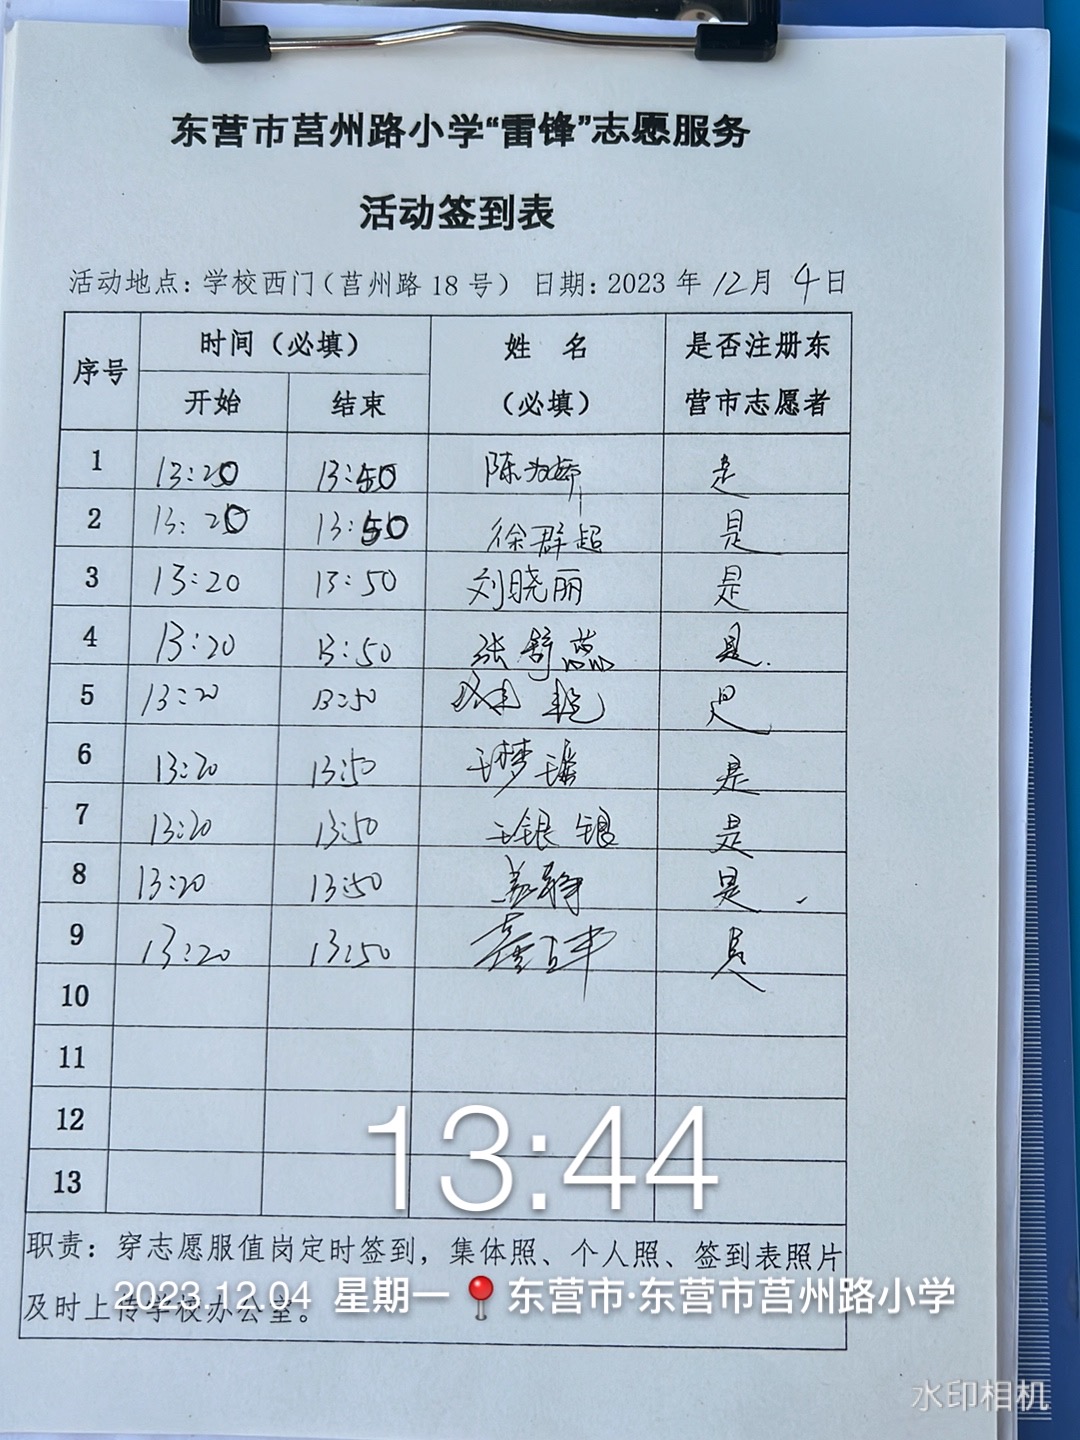 东营市莒州路小学“雷锋”志愿服务
活动签到表
活动地点：学校西门（莒州路 18 号） 日期：2023 年 12月 4日
序号 时间（必填） 姓 名（必填） 是否注册东营市志愿者
开始 结束
1 13:20 13:50 陈 是
2 13:20 13:50 徐群超 是
3 13:20 13:50 刘晓丽 是
4 13:20 13:50 张舒蕊 是.
5 13:20 13:50 是
6 13:20 13:50 王梦瑶 是
7 13:20 13:50 王银银 是
8 13:20 13:50 是
9 13:20 13:50 是
10
11
12
13
13:44
职责：穿志愿服值岗定时签到，集体照、个人照、签到表照片
及时上传学校办公室。
2023.12.04 星期一 东营市·东营市莒州路小学
水印相机